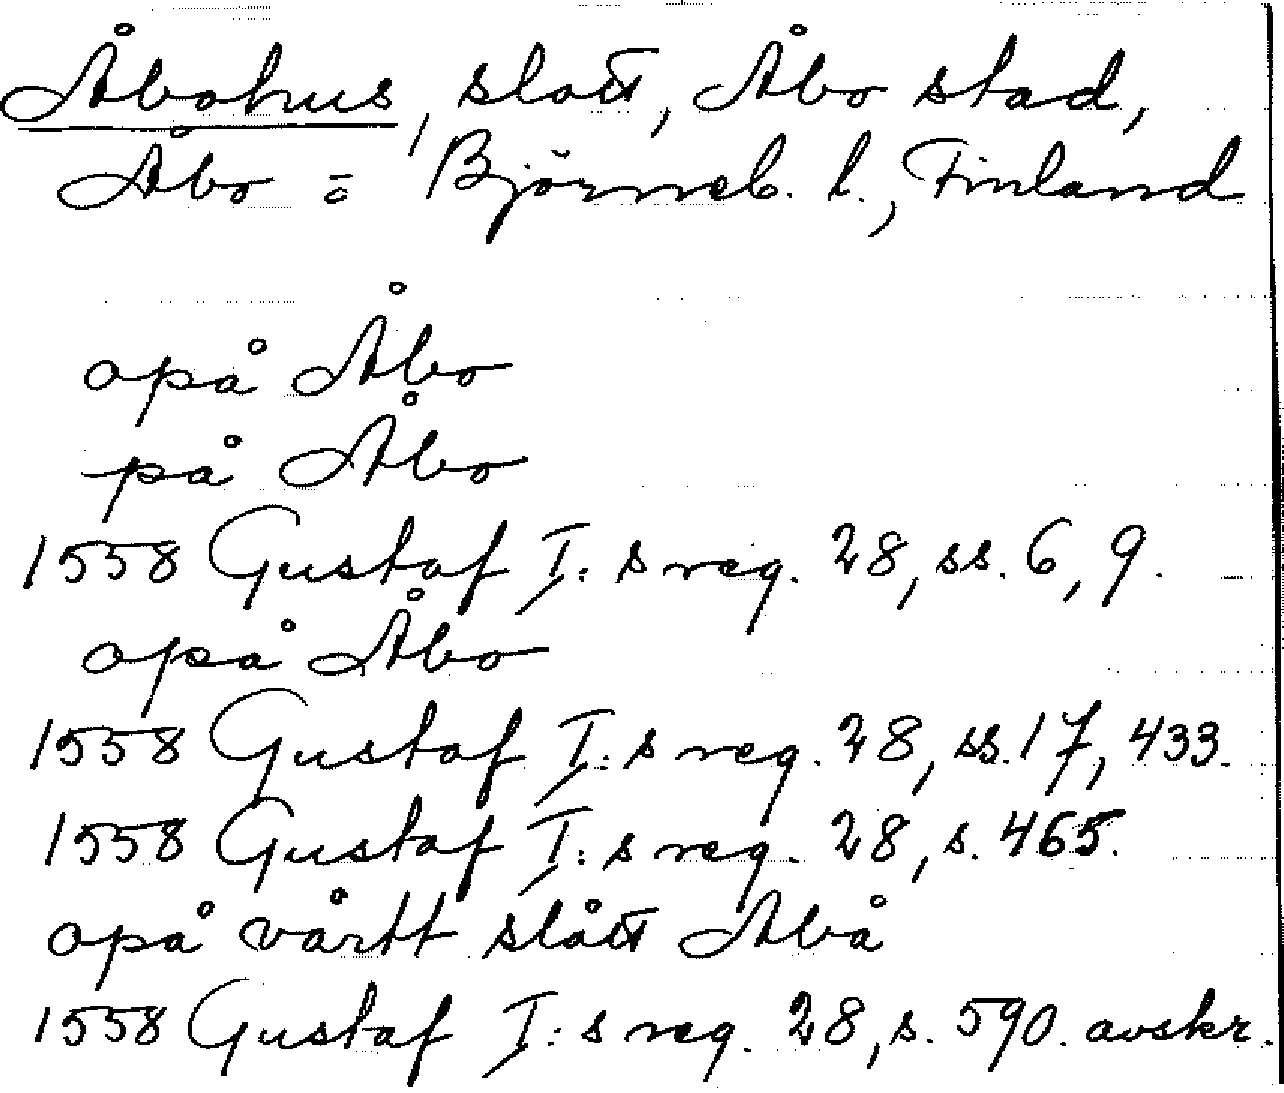 Åbohus, slott, Åbo stad,
Åbo o Björneb. l., Finland
opå Åbo
på Åbo
1558 Gustaf I:s reg. 28, ss. 6, 9.
opå Åbo
1558 Gustaf I:s reg. 28, ss. 17, 433.
1558 Gustaf I:s reg. 28, s. 465.
opå vårtt slått Åbå
1558 Gustaf I:s reg. 28, s. 590. avskr.